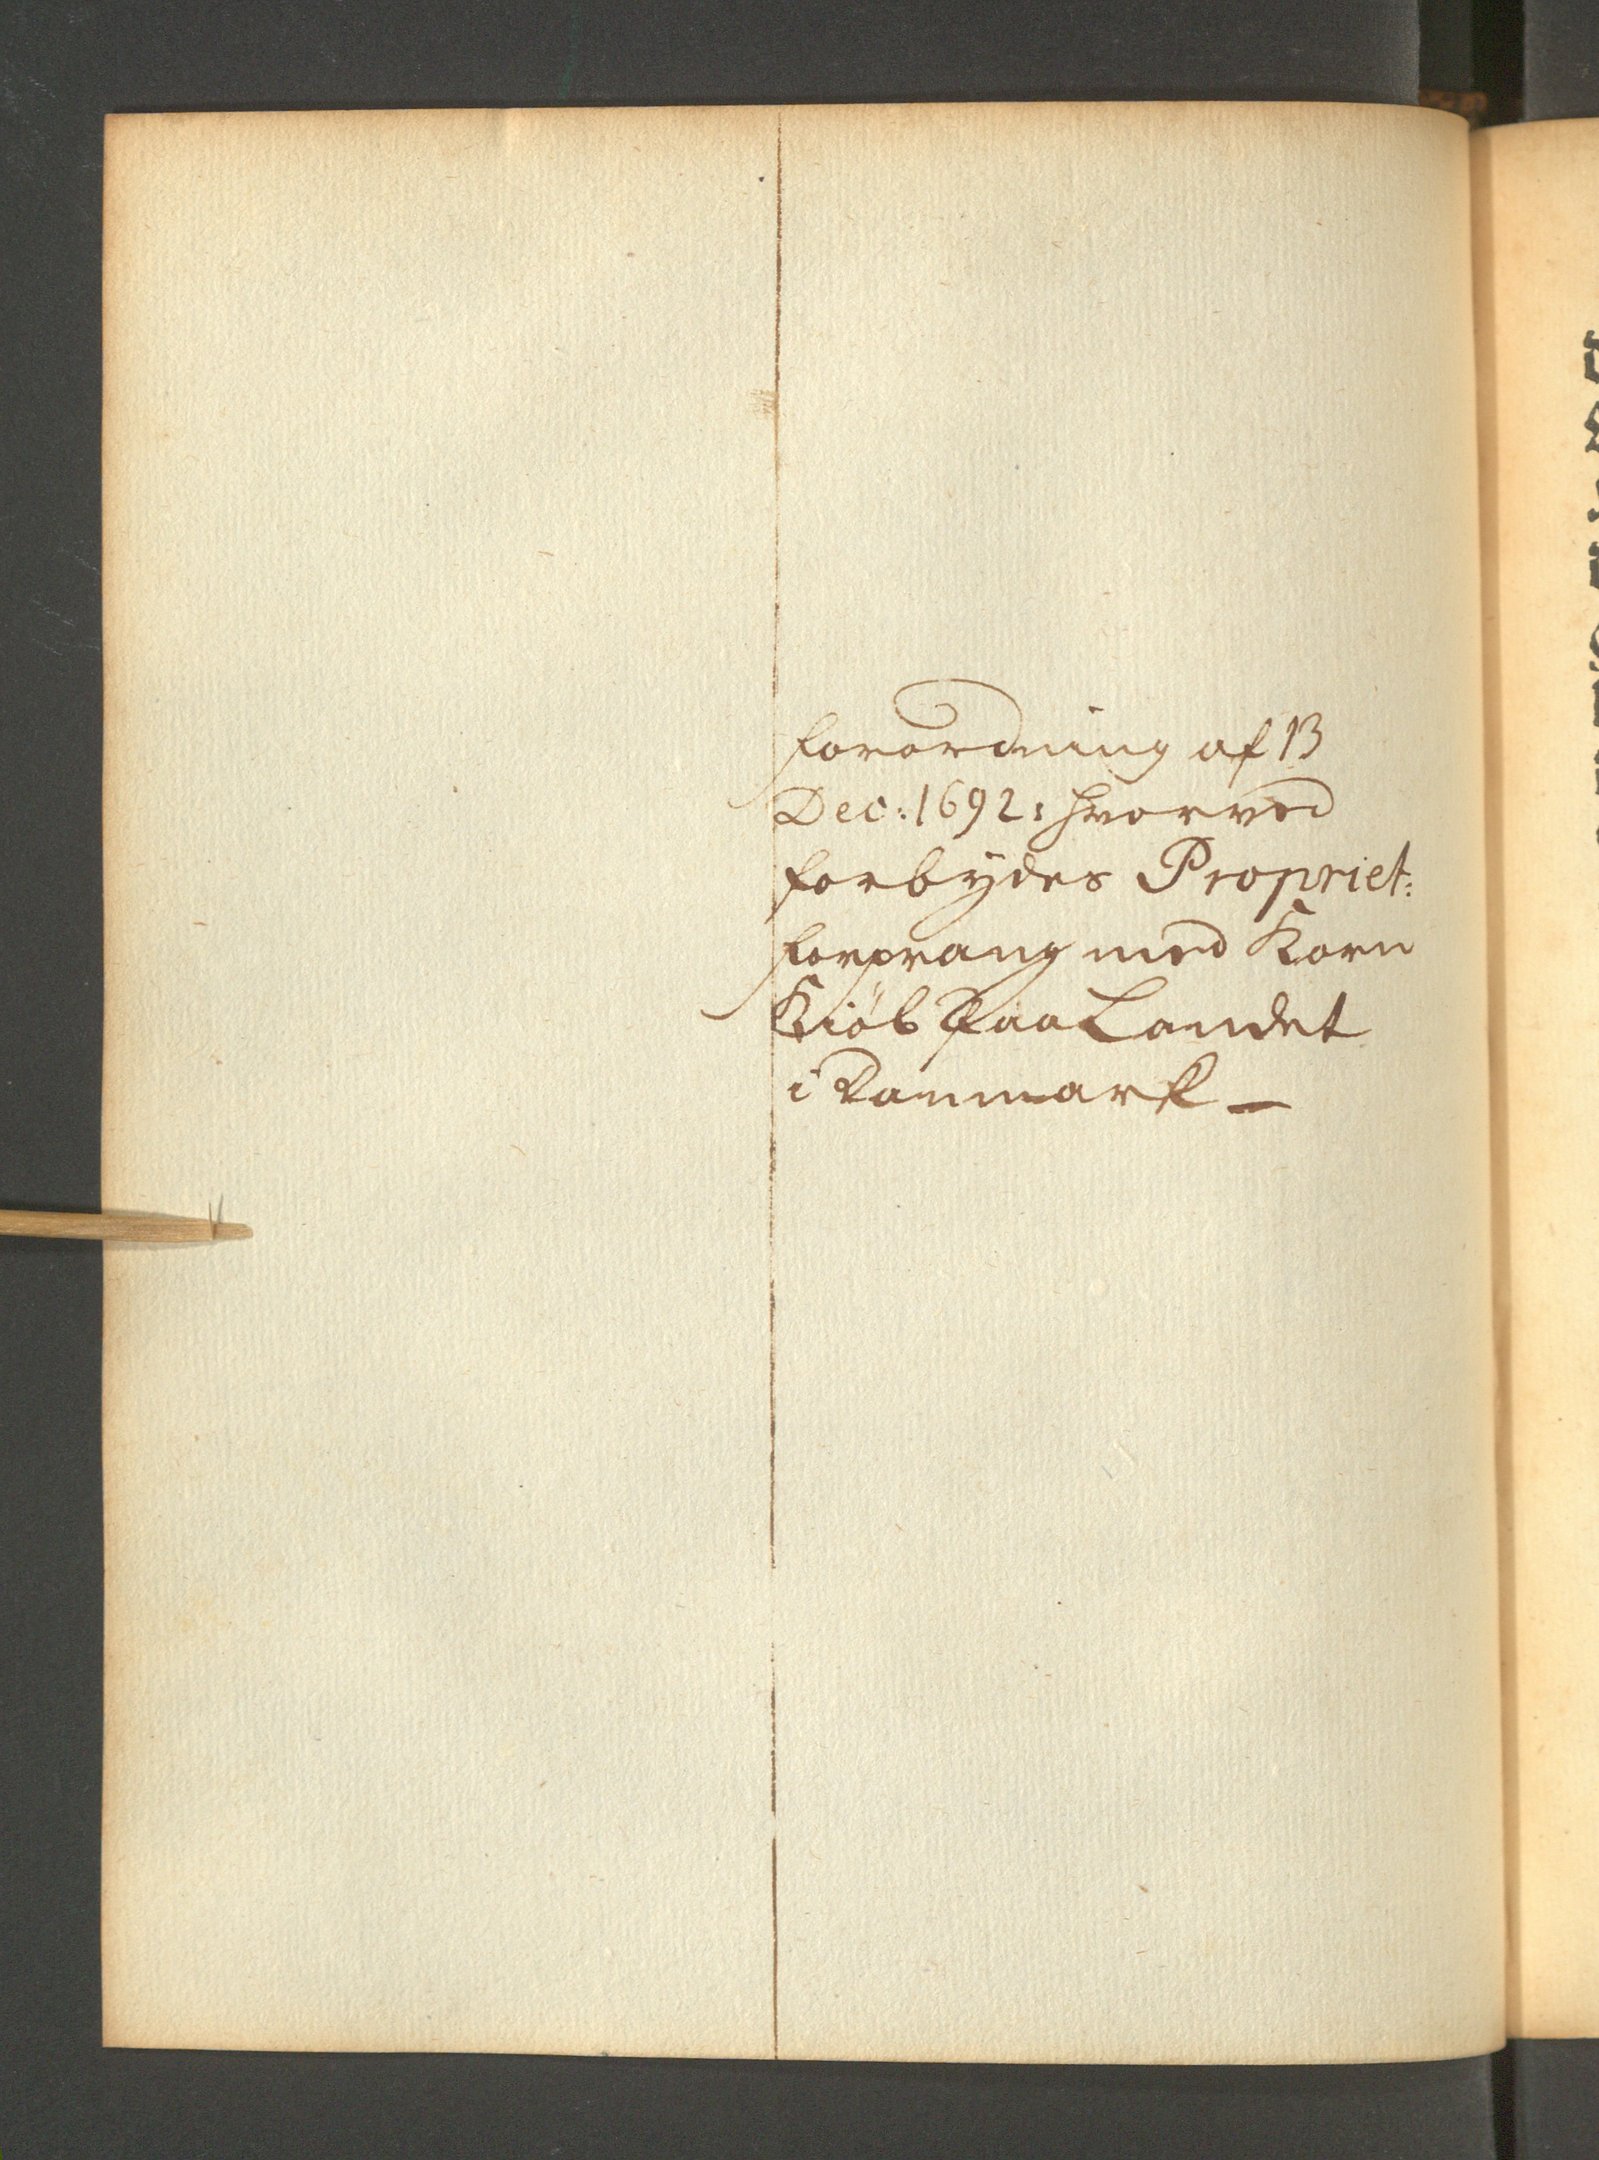 Forordning af 13
Dec: 1692: hvorved
forbydes Propriet:
forprang med Korn
Kiöb Paa Landet
i Danmark –